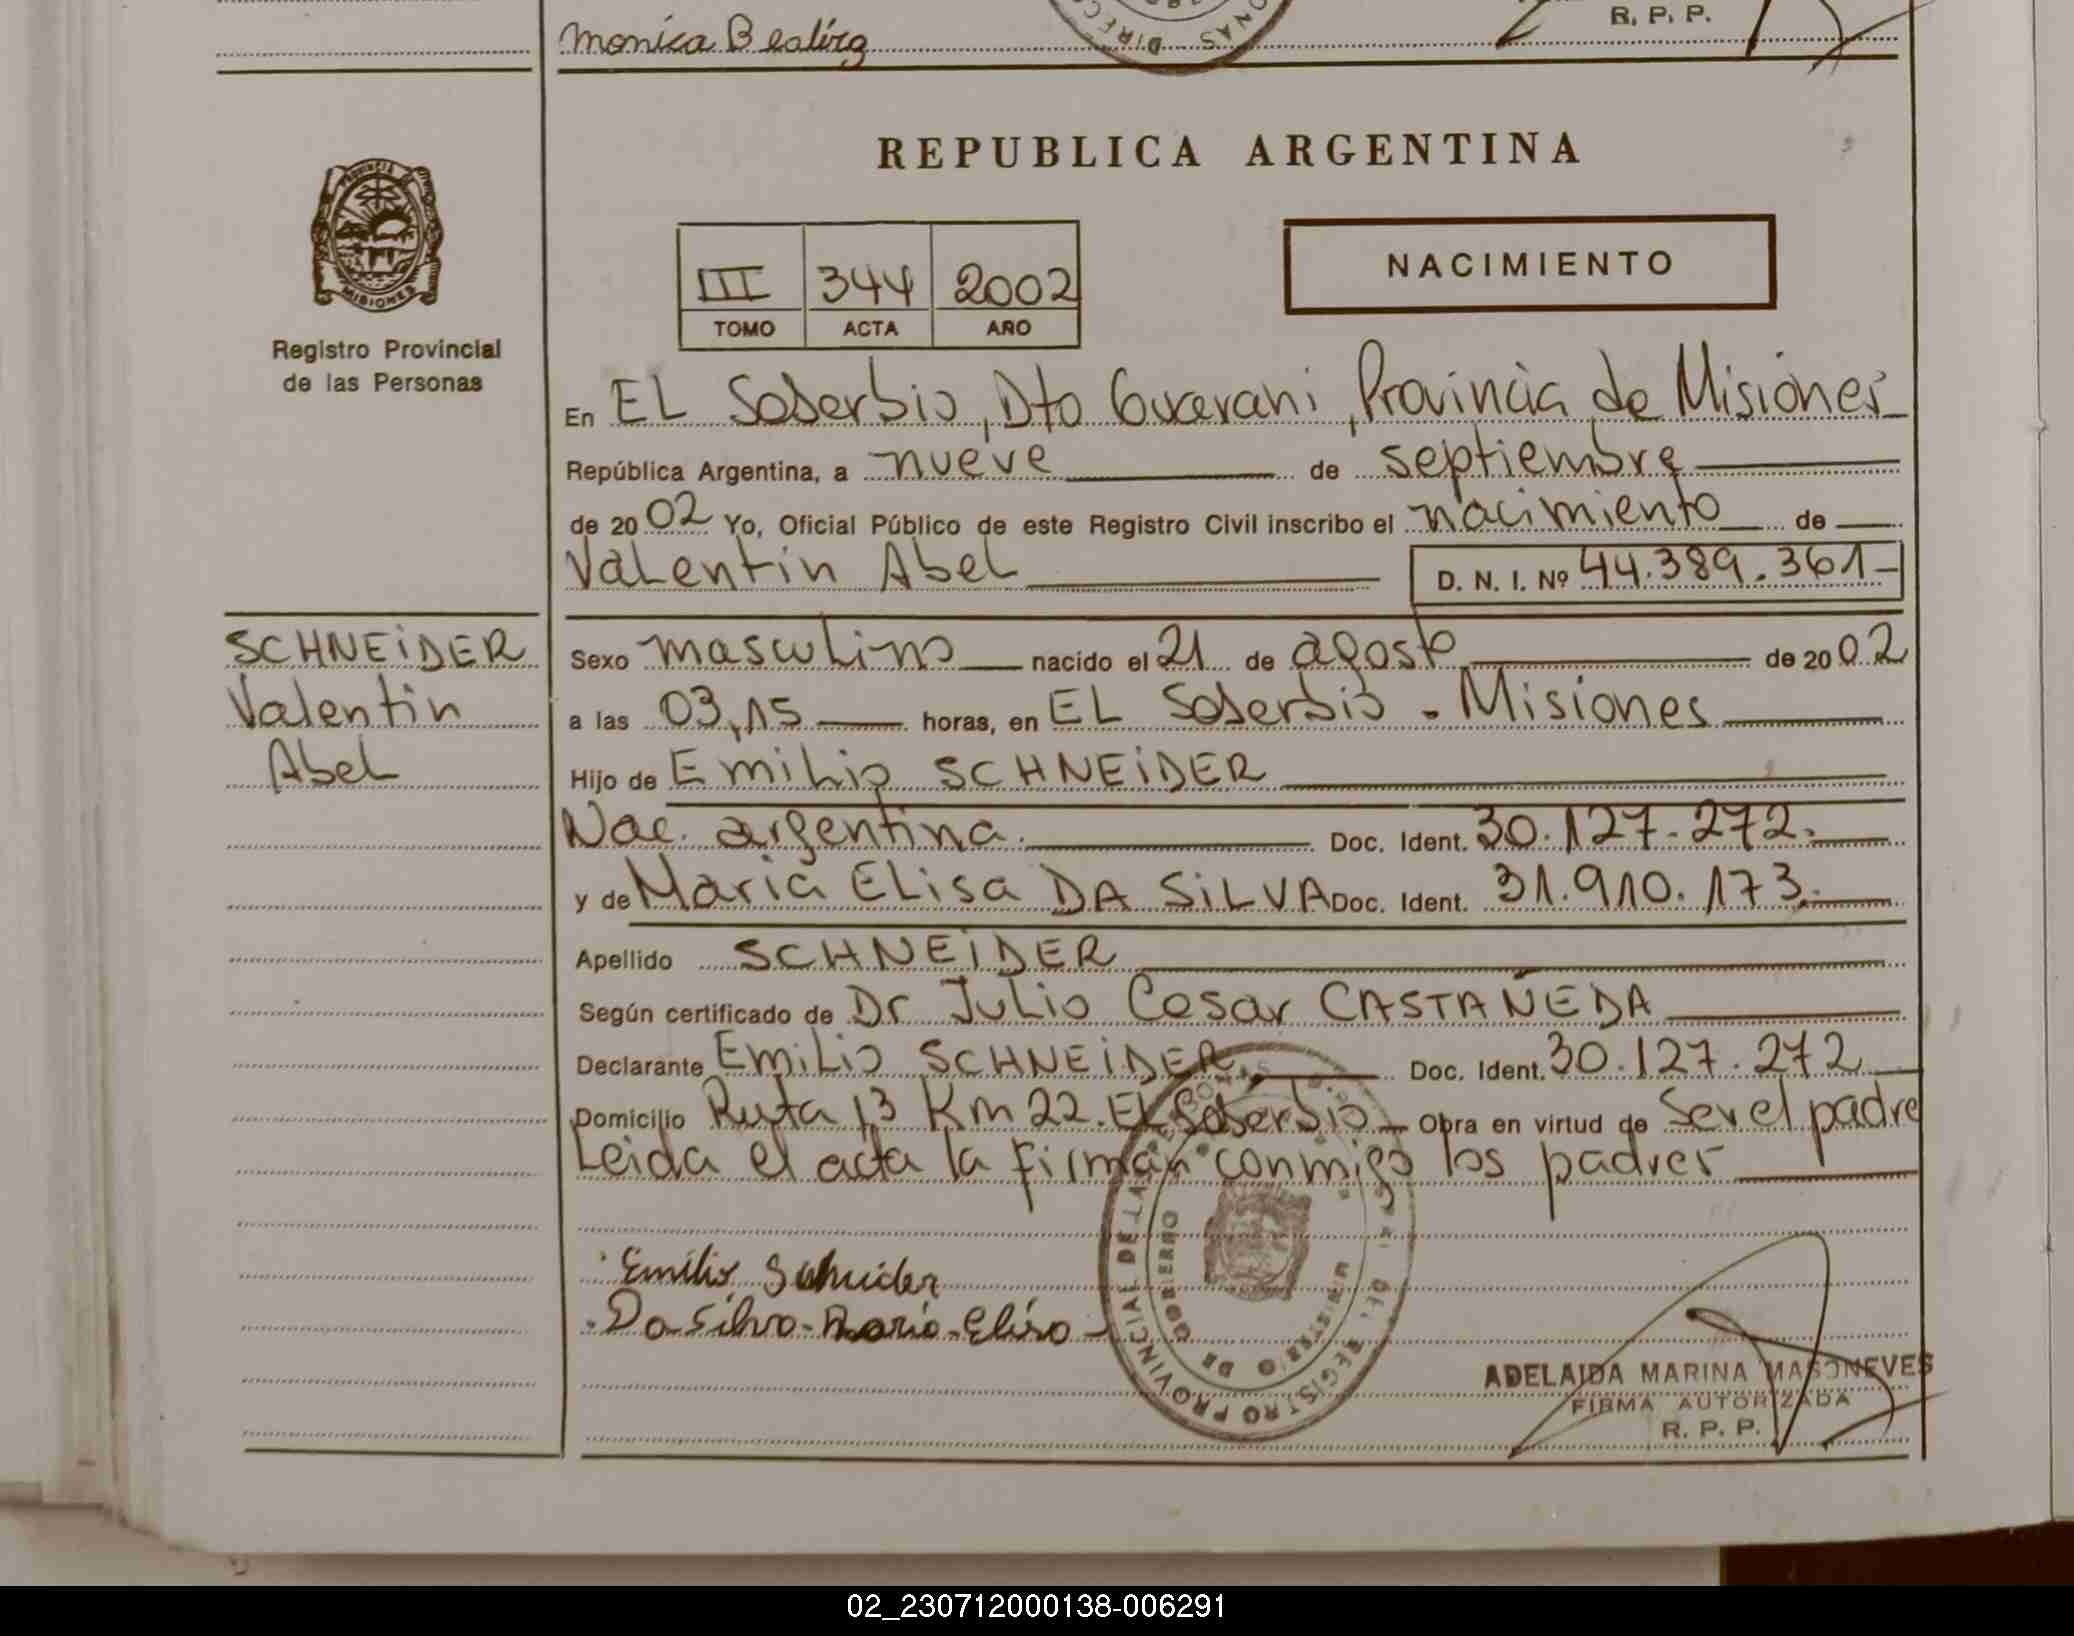 Monica Beatriz
R. P. P.
REPUBLICA ARGENTINA
III 344 2002
TOMO ACTA AÑO
NACIMIENTO
PROVINCIA DE
MISIONES
Registro Provincial
de las Personas
En EL Soberbio, Dto Guarani, Provincia de Misiones
República Argentina, a nueve de septiembre
de 2002 Yo, Oficial Público de este Registro Civil inscribo el nacimiento de
Valentin Abel D. N. I. Nº 44.389.361-
SCHNEiDER
Valentin
Abel
Sexo masculino nacido el 21 de agosto de 2002
a las 03,15 horas, en EL Soberbio - Misiones
Hijo de Emilio SCHNEiDER
Nac. argentina. Doc. Ident. 30.127.272.
y de Maria Elisa DA SiLVA Doc. Ident. 31.910.173.
Apellido SCHNEiDER
Según certificado de Dr Julio Cesar CASTAÑEDA
Declarante Emilio SCHNEiDER Doc. Ident. 30.127.272
Domicilio Ruta 13 Km 22. EL Soberbio - Obra en virtud de Ser el padre
Leida el acta la firman conmigo los padres
Emilio Schneider
Da Silva - Maria - Elisa -
REGISTRO PROVINCIAL DE LAS PERSONAS
MINISTERIO DE GOBIERNO
ADELAIDA MARINA MASONEVES
FIRMA AUTORIZADA
R. P. P.
02_230712000138-006291